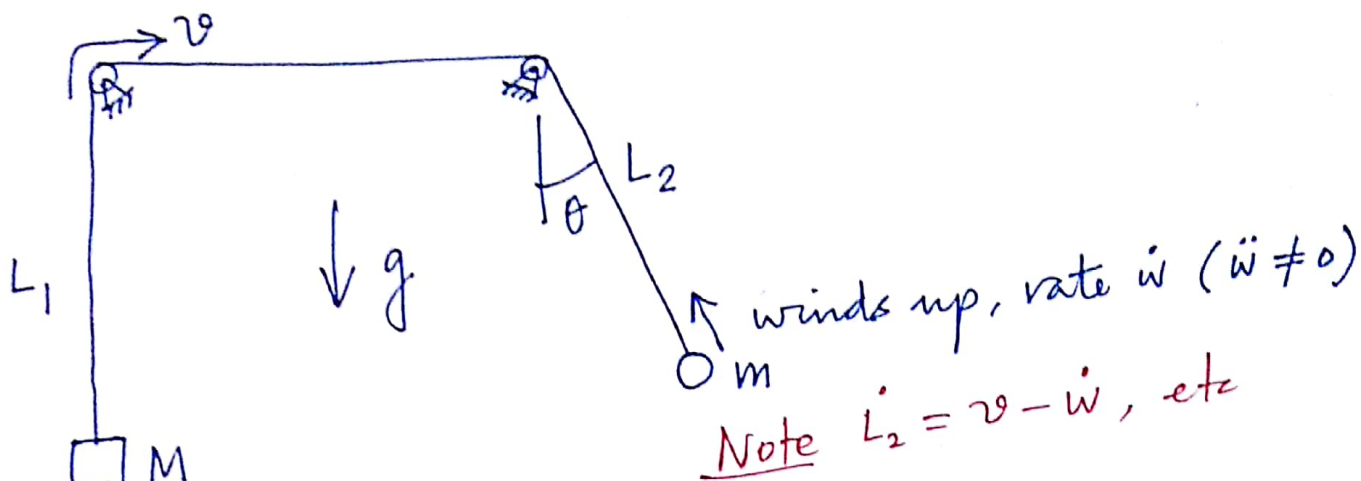 v
L₁
g
θ
L₂
winds up, rate ẇ (ẅ ≠ 0)
m
Note L̇₂ = v - ẇ, etc
M